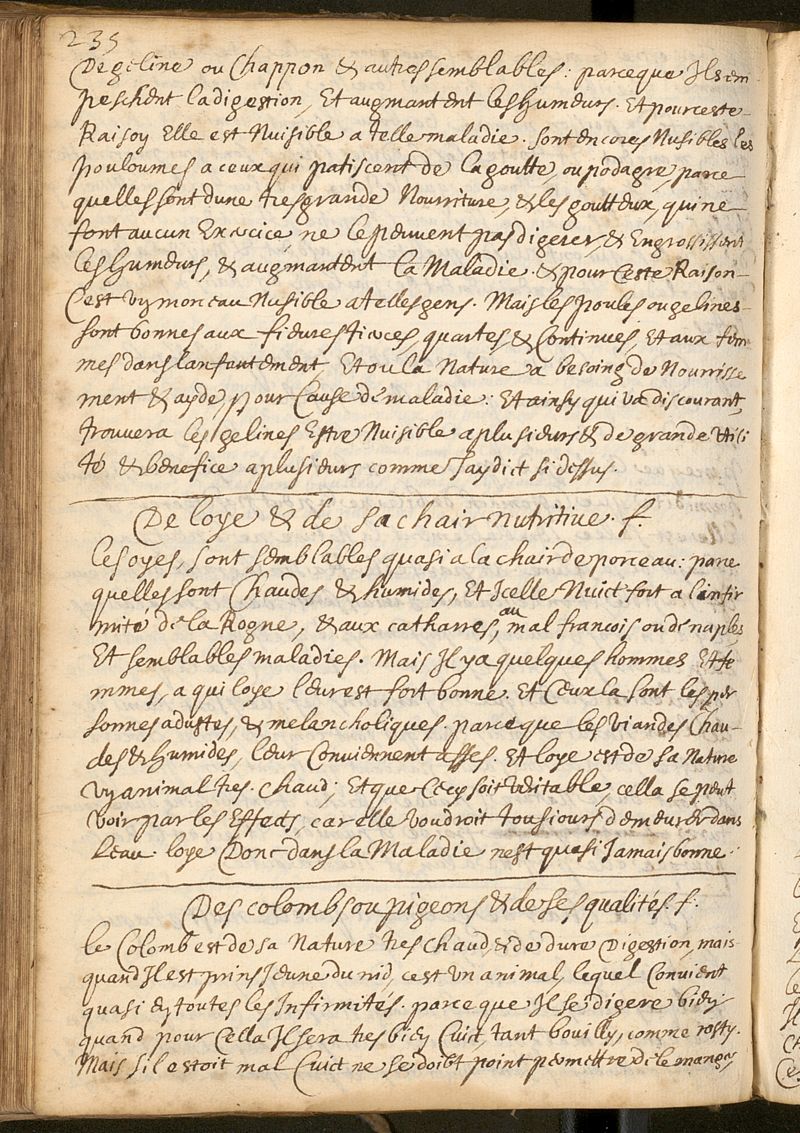 235
De geline ou Chappon & autres semblables: parceque Ilz em
peschent la digestion, Et augmantent les humeurs. Et pour ceste
Raison Elle est Nuisible a telle maladie. sont encores Nusibles les
poulounes a ceux qui patiscent de la goutte, ou podagre, parce
quelles sont dune tresgrande Nourriture, & les goutteux, qui ne
font aucun Exercice, ne le peuvent pas digerer, & Engrossissent
les humeurs, & augmantent la Maladie. & pour Ceste Raison
Cest un morceau Nusible a telles gens. Mais les poules ou gelines
sont bonnes aux fieures tierces, quartes, & Continues, Et aux fem
mes dans lanfentement, Et ou la Nature a besoing de Nourrisse
ment & ayde, pour Cause de maladie: Et ainsy qui va discourant,
trouvera les gelines Estre Nuisible a plusieurs & de grande utili
té & benefice a plusieurs comme Jay dict si dessus.
De loye & de sa chair nutritive. f.
Les oyes, sont semblables quasi a la chair de porceau: parce
quelles sont Chaudes & humides, Et Icelle Nuict fort a linfir
mité de la Rogne, & aux catharres, au mal francois ou de naples,
Et semblables maladies. Mais Il y a quelques hommes Et fe
mmes, a qui loye leur est fort bonne. Et Ceux la sont les per
sonnes adustes, & melancholiques. parceque les viandes Chau
des & humides, leur Conviennent asses. Et loye est de sa Nature
un animal tres. chaud; Et que Cecy soit veritable, cella se peut
voir par les Effects, car elle voudroit tousiours demeurer dans
Leau. loye Donc dans la Maladie nest quasi Jamais bonne.
Des colombs ou pigeons & de ses qualités. f.
le Colomb est de sa Nature tres Chaud, & de dure Digestion, mais
quand Il est prins Jeune du nid, cest un animal, lequel Convient
quasi en toutes les Infirmités. parce que Il se digere bien
quand pour Cella Il sera tres bien Cuict, tant bouilly, comme rosty.
Mais sil estoit mal Cuict ne se doibt point permettre de le manger